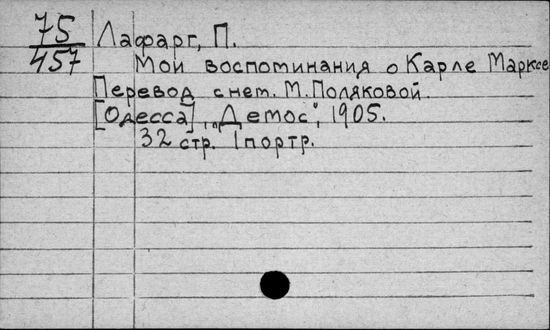 75
457
Лафарг, П.
Мои воспоминания о Карле Марксе
Перевод с нем. М. Поляковой.
[Одесса], "Демос", 1905.
32 стр. 1 портр.